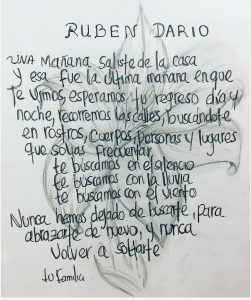 RUBEN DARIO
UNA Mañana saliste de la casa
y esa fue la última mañana en que
te vimos, esperamos tu regreso día y
noche, recorremos las calles, buscándote
en rostros, cuerpos, personas y lugares
que solías frecuentar.
te buscamos en el silencio
te buscamos con la lluvia
te buscamos con el viento
Nunca hemos dejado de buscarte, para
abrazarte de nuevo, y nunca
volver a soltarte
tu familia.